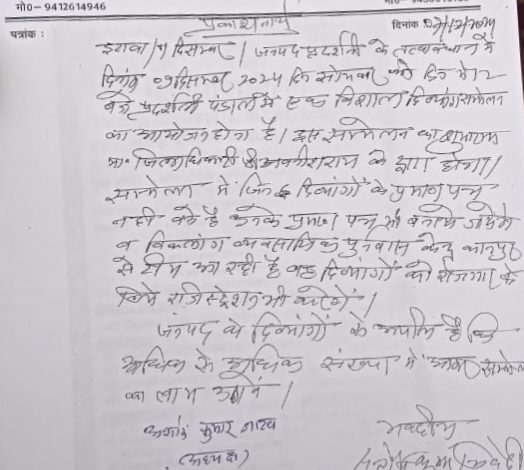 मो०- 9412614946
पत्रांक :
प्रकाशनार्थ
दिनांक
इटावा दिसम्बर / जनपद प्रदर्शनी के तत्वावधान में
दिनांक दिसम्बर 2024 दिन सोमवार को दिन में 12
बजे प्रदर्शनी पंडाल में एक विशाल दिव्यांग सम्मेलन
का आयोजन होना है। इस सम्मेलन का शुभारम्भ
मा० जिलाधिकारी श्री अवनीश राय के द्वारा होगा।
सम्मेलन में जिन दिव्यांगों के प्रमाण पत्र
नही बने है उनके प्रमाण पत्र भी बनाये जायेगे
व विकलांग व्यवसायिक पुनर्वास केन्द्र कानपुर
से टीम आ रही है वह दिव्यांगों को रोजगार के
लिये रजिस्ट्रेशन भी करेगें।
जनपद के दिव्यांगों से अपील है कि
अधिक से अधिक संख्या में आकर सम्मेलन
का लाभ उठायें।
कुमार
भवदीय
(अध्यक्ष)